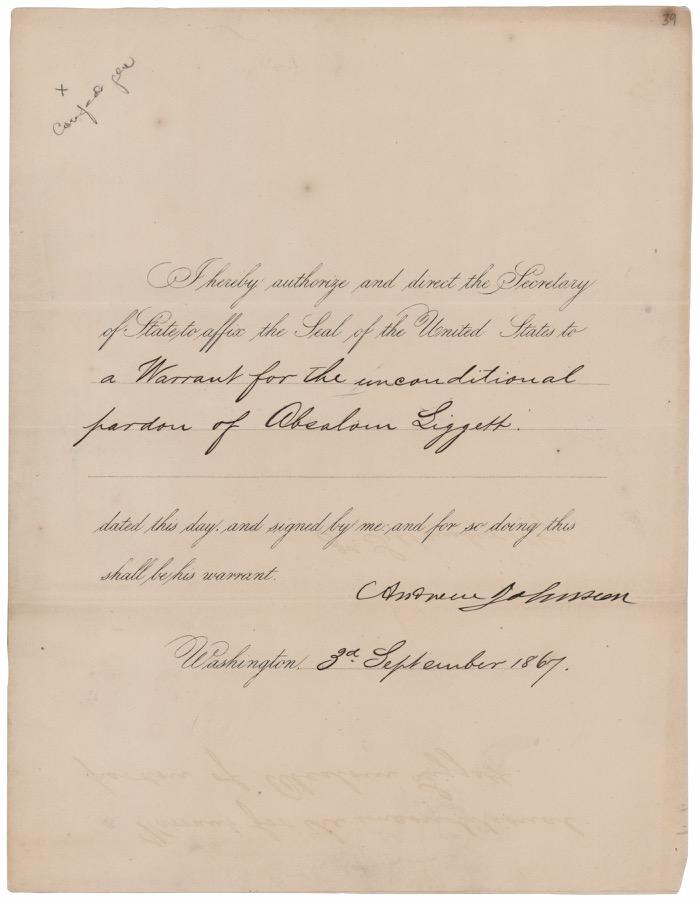 39
x
I hereby authorize and direct the Secretary
of State to affix the Seal of the United States to
a Warrant for the unconditional
pardon of Absalom Liggett.
dated this day, and signed by me: and for so doing this
shall be his warrant.
Andrew Johnson
Washington, 3d September 1867.